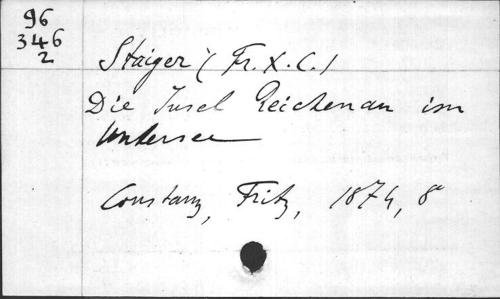 96
346
2
Staiger (Fr. X. C.)
Die Insel Reichenau im
Untersee
Constanz, Fritz, 1874, 8°